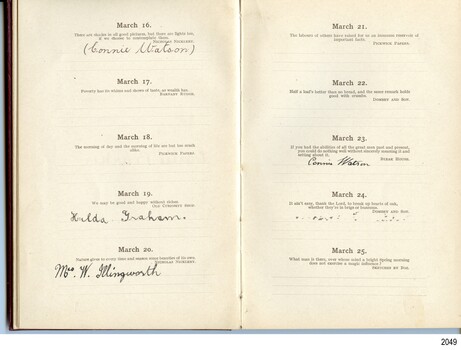 March 16.
There are shades in all good pictures, but there are lights too,
if we choose to contemplate them.
NICHOLAS NICKLEBY.
(Connie Watson)
March 17.
Poverty has its whims and shows of taste, as wealth has.
BARNABY RUDGE.
March 18.
The morning of day and the morning of life are but too much
alike.
PICKWICK PAPERS.
March 19.
We may be good and happy without riches.
OLD CURIOSITY SHOP.
Hilda Graham.
March 20.
Nature gives to every time and season some beauties of its own.
NICHOLAS NICKLEBY.
Mrs. W. Illingworth
March 21.
The labours of others have raised for us an immense reservoir of
important facts.
PICKWICK PAPERS.
March 22.
Half a loaf's better than no bread, and the same remark holds
good with crumbs.
DOMBEY AND SON.
March 23.
If you had the abilities of all the great men past and present,
you could do nothing well without sincerely meaning it and
setting about it.
BLEAK HOUSE.
Connie Watson
March 24.
It ain't easy, thank the Lord, to break up hearts of oak,
whether they're in brigs or buzzums.
DOMBEY AND SON.
March 25.
What man is there, over whose mind a bright Spring morning
does not exercise a magic influence?
SKETCHES BY BOZ.
2049